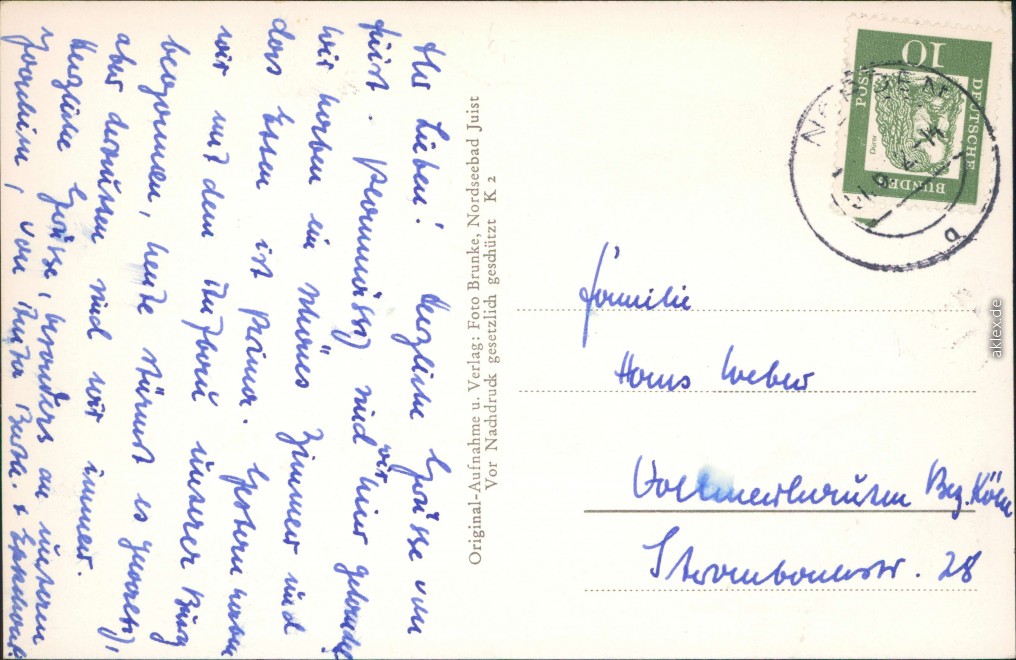 Ihr Lieben! Herzliche Grüsse von
Juist. Planmässig sind wir hier gelandet
wir haben ein schönes Zimmer und
das Essen ist prima. Gestern haben
wir mit dem Aufbau unserer Burg
begonnen, heute stürmt es
aber draussen sind wir immer.
Herzliche Grüsse, besonders an unseren
Joachim, von Eurer
Original-Aufnahme u. Verlag: Foto Brunke, Nordseebad Juist
Vor Nachdruck gesetzlich geschützt K 2
10
DEUTSCHE
BUNDES
POST
Dürer
NORDEN
a
Familie
Hans Weber
Vollmerhausen Bez. Köln
Strombacherstr. 28
aklex.de